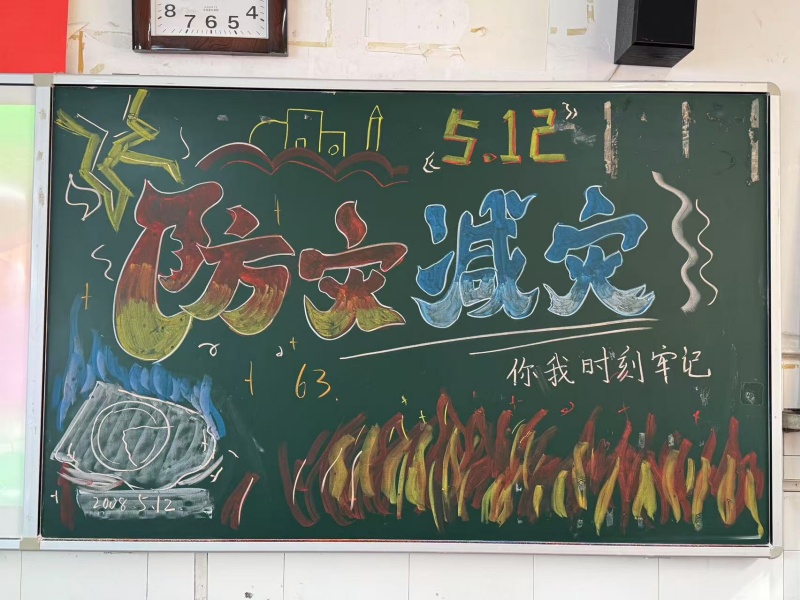 8 7 6 5 4
5.12
防灾减灾
63.
你我时刻牢记
2008 5.12.